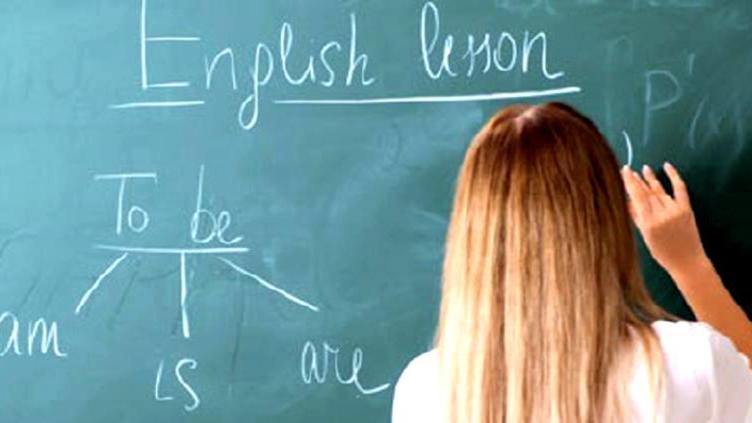 English lesson
P'(x)
To be
am is are